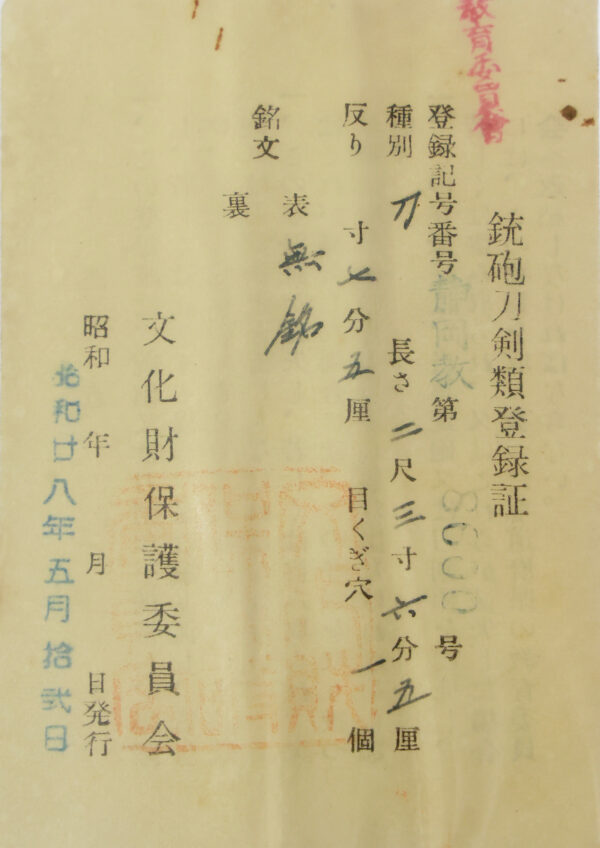 教育委員會
銃砲刀剣類登録証
登録記号番号 静岡教 第 号
種別 刀 長さ 二尺三寸六分五厘
反り 寸七分五厘 目くぎ穴 一個
銘文 表 無銘
裏
文化財保護委員会
昭和 年 月 日発行
昭和廿八年五月拾弐日